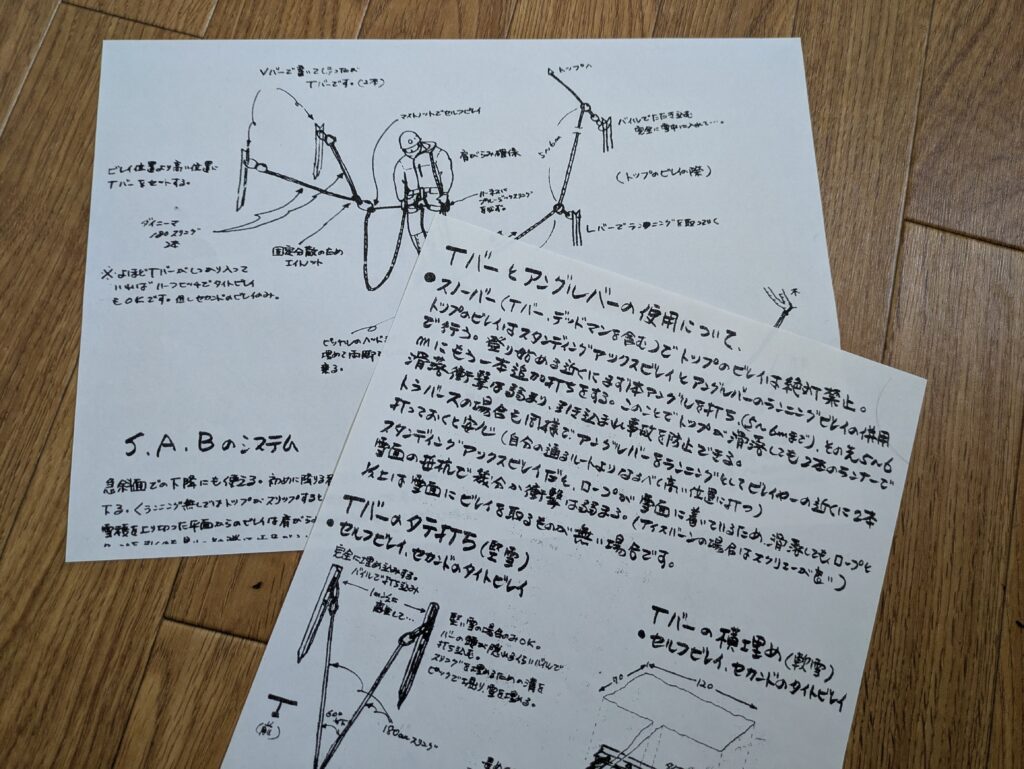 Vバーで書いてしまったが
Tバーです。(2本)
マストノットでセルフビレイ
トップへ
バイルでたたき込む
完全に雪中に入れて…。
5〜6m
肩がらみ確保
(トップのビレイの際)
ビレイ位置より高い位置に
Tバーをセットする。
ハーネスに
ダイニーマ
180スリング
2本
固定分散のため
エイトノット
Lバーでランニングを取っておく
※よほどTバーがしっかり入って
いればハーフヒッチでタイトビレイ
もOKです。但しセカンドのビレイのみ。
ピッケルのヘッド
埋めて両脚で
乗る。
S.A.Bのシステム
急斜面での下降にも使える。初めに降りる
下る。くランニング無しではトップがスリップすると
雪積を上り切った平面からのビレイは肩がらみ
TバーとアングルバーΟ使用について、
●スノーバー(Tバー・デッドマンを含む)でトップのビレイは絶対禁止。
トップのビレイはスタンディングアックスビレイとアングルバーのランニングビレイの併用
で行う。登り始める近くにまず1本アングルを打ち(5〜6mまで)、その先5〜6
mにもう一本追加打ちをする。このことでトップが滑落しても2本のランナーで
滑落衝撃は弱まり、引き込まれ事故を防止できる。
トラバースの場合も同様でアングルバーをランニングとしてビレイヤーの近くに2本
打っておくと安心(自分の通るルートよりなるべく高い位置に打つ)
スタンディングアックスビレイだと、ロープが雪面に着いているため、滑落しても、ロープと
雪面の抵抗で幾分か衝撃は弱まる。(アイスバーンの場合はスクリューが良い)
以上は雪面にビレイを取るものが無い場合です。
Tバーのタテ打ち(堅雪)
●セルフビレイ、セカンドのタイトビレイ
完全に埋め込みする。
バイルで打ち込み
離して…
堅い雪の場合のみOK。
バーの頭が隠れるくらいバイルで
打ち込む。
スリングを埋めるための溝を
ピックで掘り、雪を埋める。
60°
180cmスリング
T
(前)
Tバーの横埋め(軟雪)
●セルフビレイ、セカンドのタイトビレイ
70
120